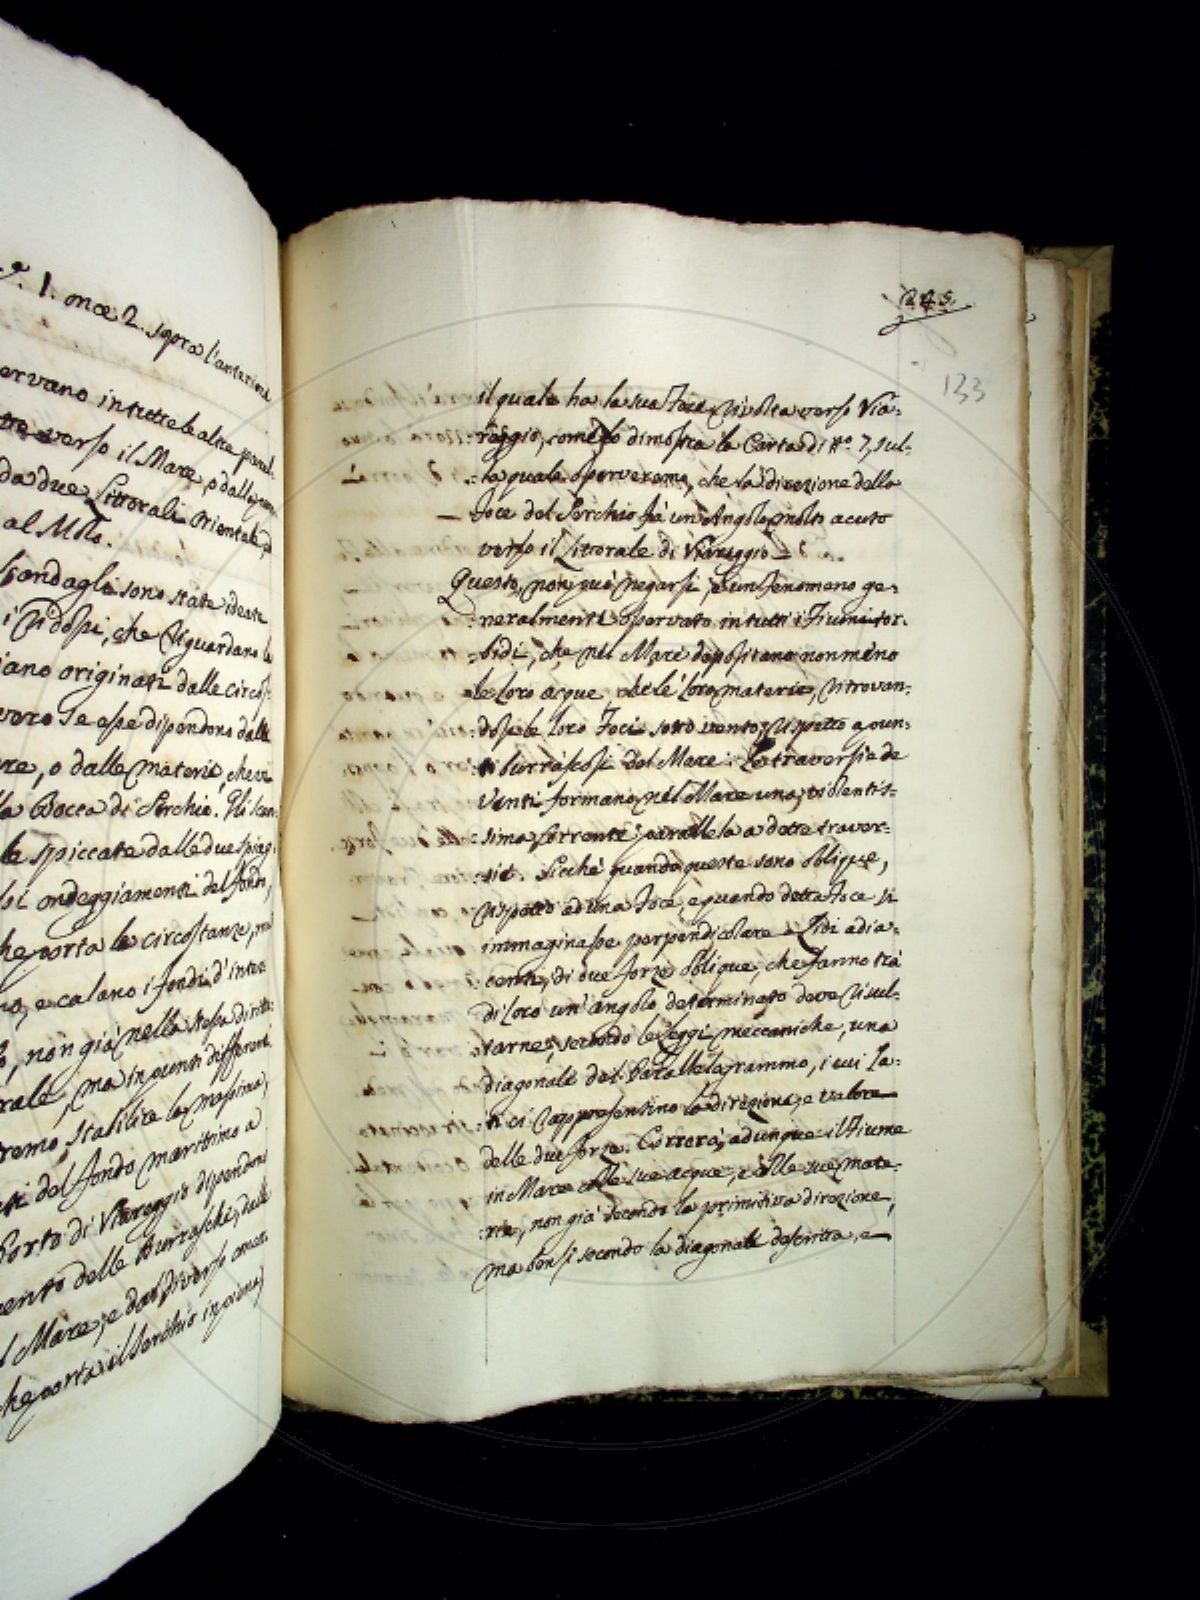 1. once 2. sopra l'anteriore
ervano in tutte le altre paral-
verso il Mare, o dalle
da due Littorali Orientale,
al Molo.
Scandagli sono state ideate
i Ridossi, che riguardano
iano originati dalle circos-
vero se esse dipendono dalle
re, o dalle materie, che vi
la Bocca di Serchio. Gli scan-
le spiccate dalle due spiag-
ondeggiamenti del fondo,
he porta le circostanze,
no, e calano i fondi d'inter
non già nella stessa diritt-
rale, ma in punti differenti
remo, stabilire la massima,
ti del fondo marittimo a
Porto di Viareggio dipendono
mento delle Burrasche, dalle
l Mare, e dal diverso
he porta il Serchio in piena,
245.
133
il quale ha la sua Foce rivolta verso Via-
reggio, come lo dimostra la Carta di N.º 7, sul-
la quale osserveremo, che la direzione della
Foce del Serchio fà un Angolo molto acuto
verso il Littorale di Viareggio
Questo, non può negarsi, è un fenomeno ge-
neralmente osservato in tutti i Fiumi tor-
bidi, che nel Mare depositano non meno
le loro acque, che le loro materie, ritrovan-
dosi le loro Foci sotto vento, rispetto a' ven-
ti burrascosi del Mare. Le traversie de
Venti formano nel Mare una violentis-
sima Corrente parallela a dette traver-
sie. Sicché quando queste sono oblique,
rispetto ad una Foce, e quando detta Foce si
immaginasse perpendicolare a' Lidi adia-
centi, di due forze oblique, che fanno trà
di loro un' angolo determinato deve risul-
tarne, secondo le Leggi meccaniche, una
diagonale del Parallelogrammo, i cui la-
ti ci rappresentino la direzione, e valore
delle due forze. Correrà, adunque il Fiume
in Mare colle sue acque, e colle sue mate-
rie, non già secondo la primitiva direzione,
ma bensì secondo la diagonale descritta, e